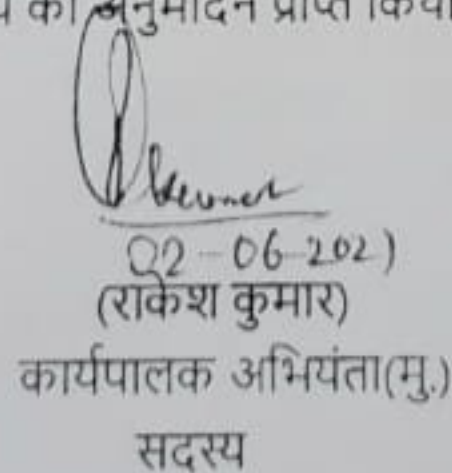 को अनुमोदन प्राप्त किया
02-06-2021
(राकेश कुमार)
कार्यपालक अभियंता(मु.)
सदस्य